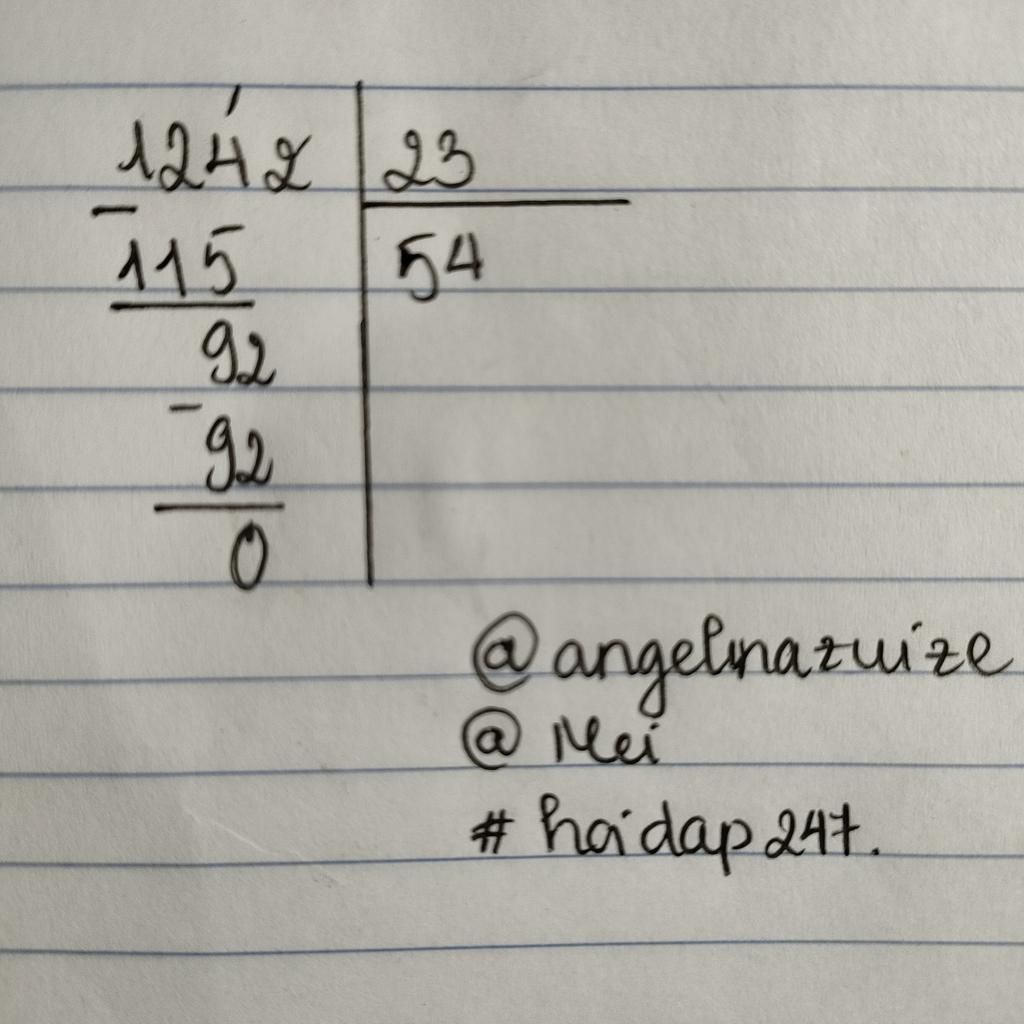 1242 23
- 115 54
92
- 92
0
@angelinazuize
@ Mei
# hoidap247.